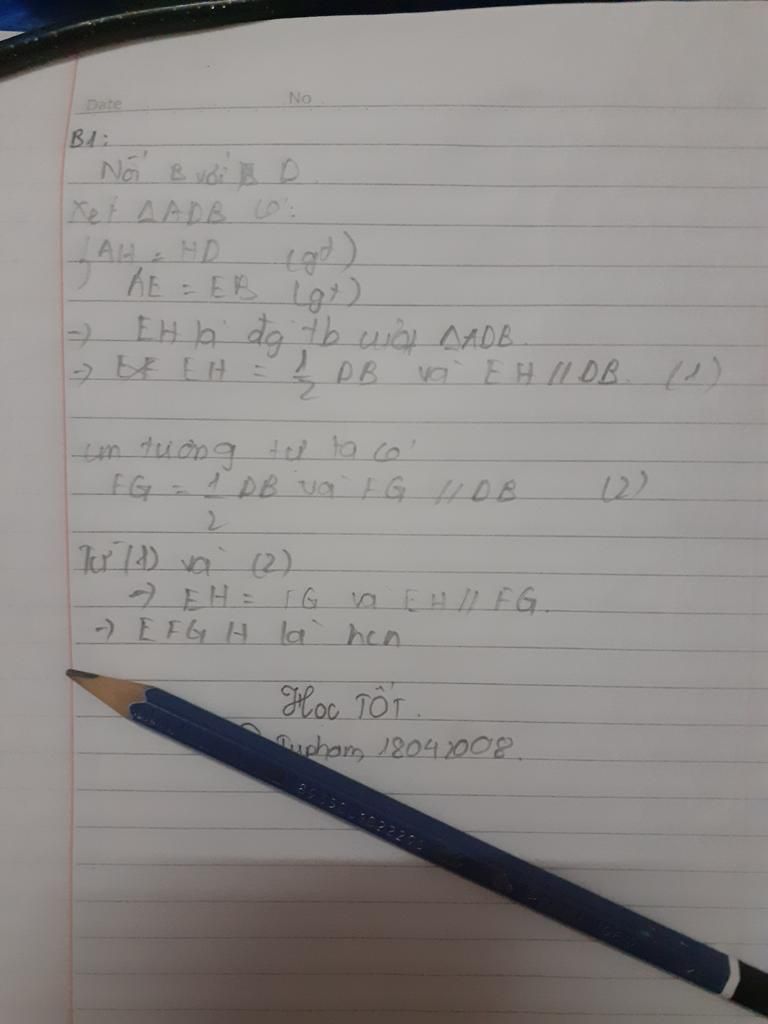 Date No
B1:
Nối B với D
Xét ΔADB có:
AH = HD (gt)
AE = EB (gt)
=> EH là đg tb của ΔADB
=> EH = 1/2 DB và EH // DB. (1)
cm tương tự ta có
FG = 1/2 DB và FG // DB (2)
Từ (1) và (2)
=> EH = FG và EH // FG.
=> EFGH là hcn
Học TỐT.
18042008.